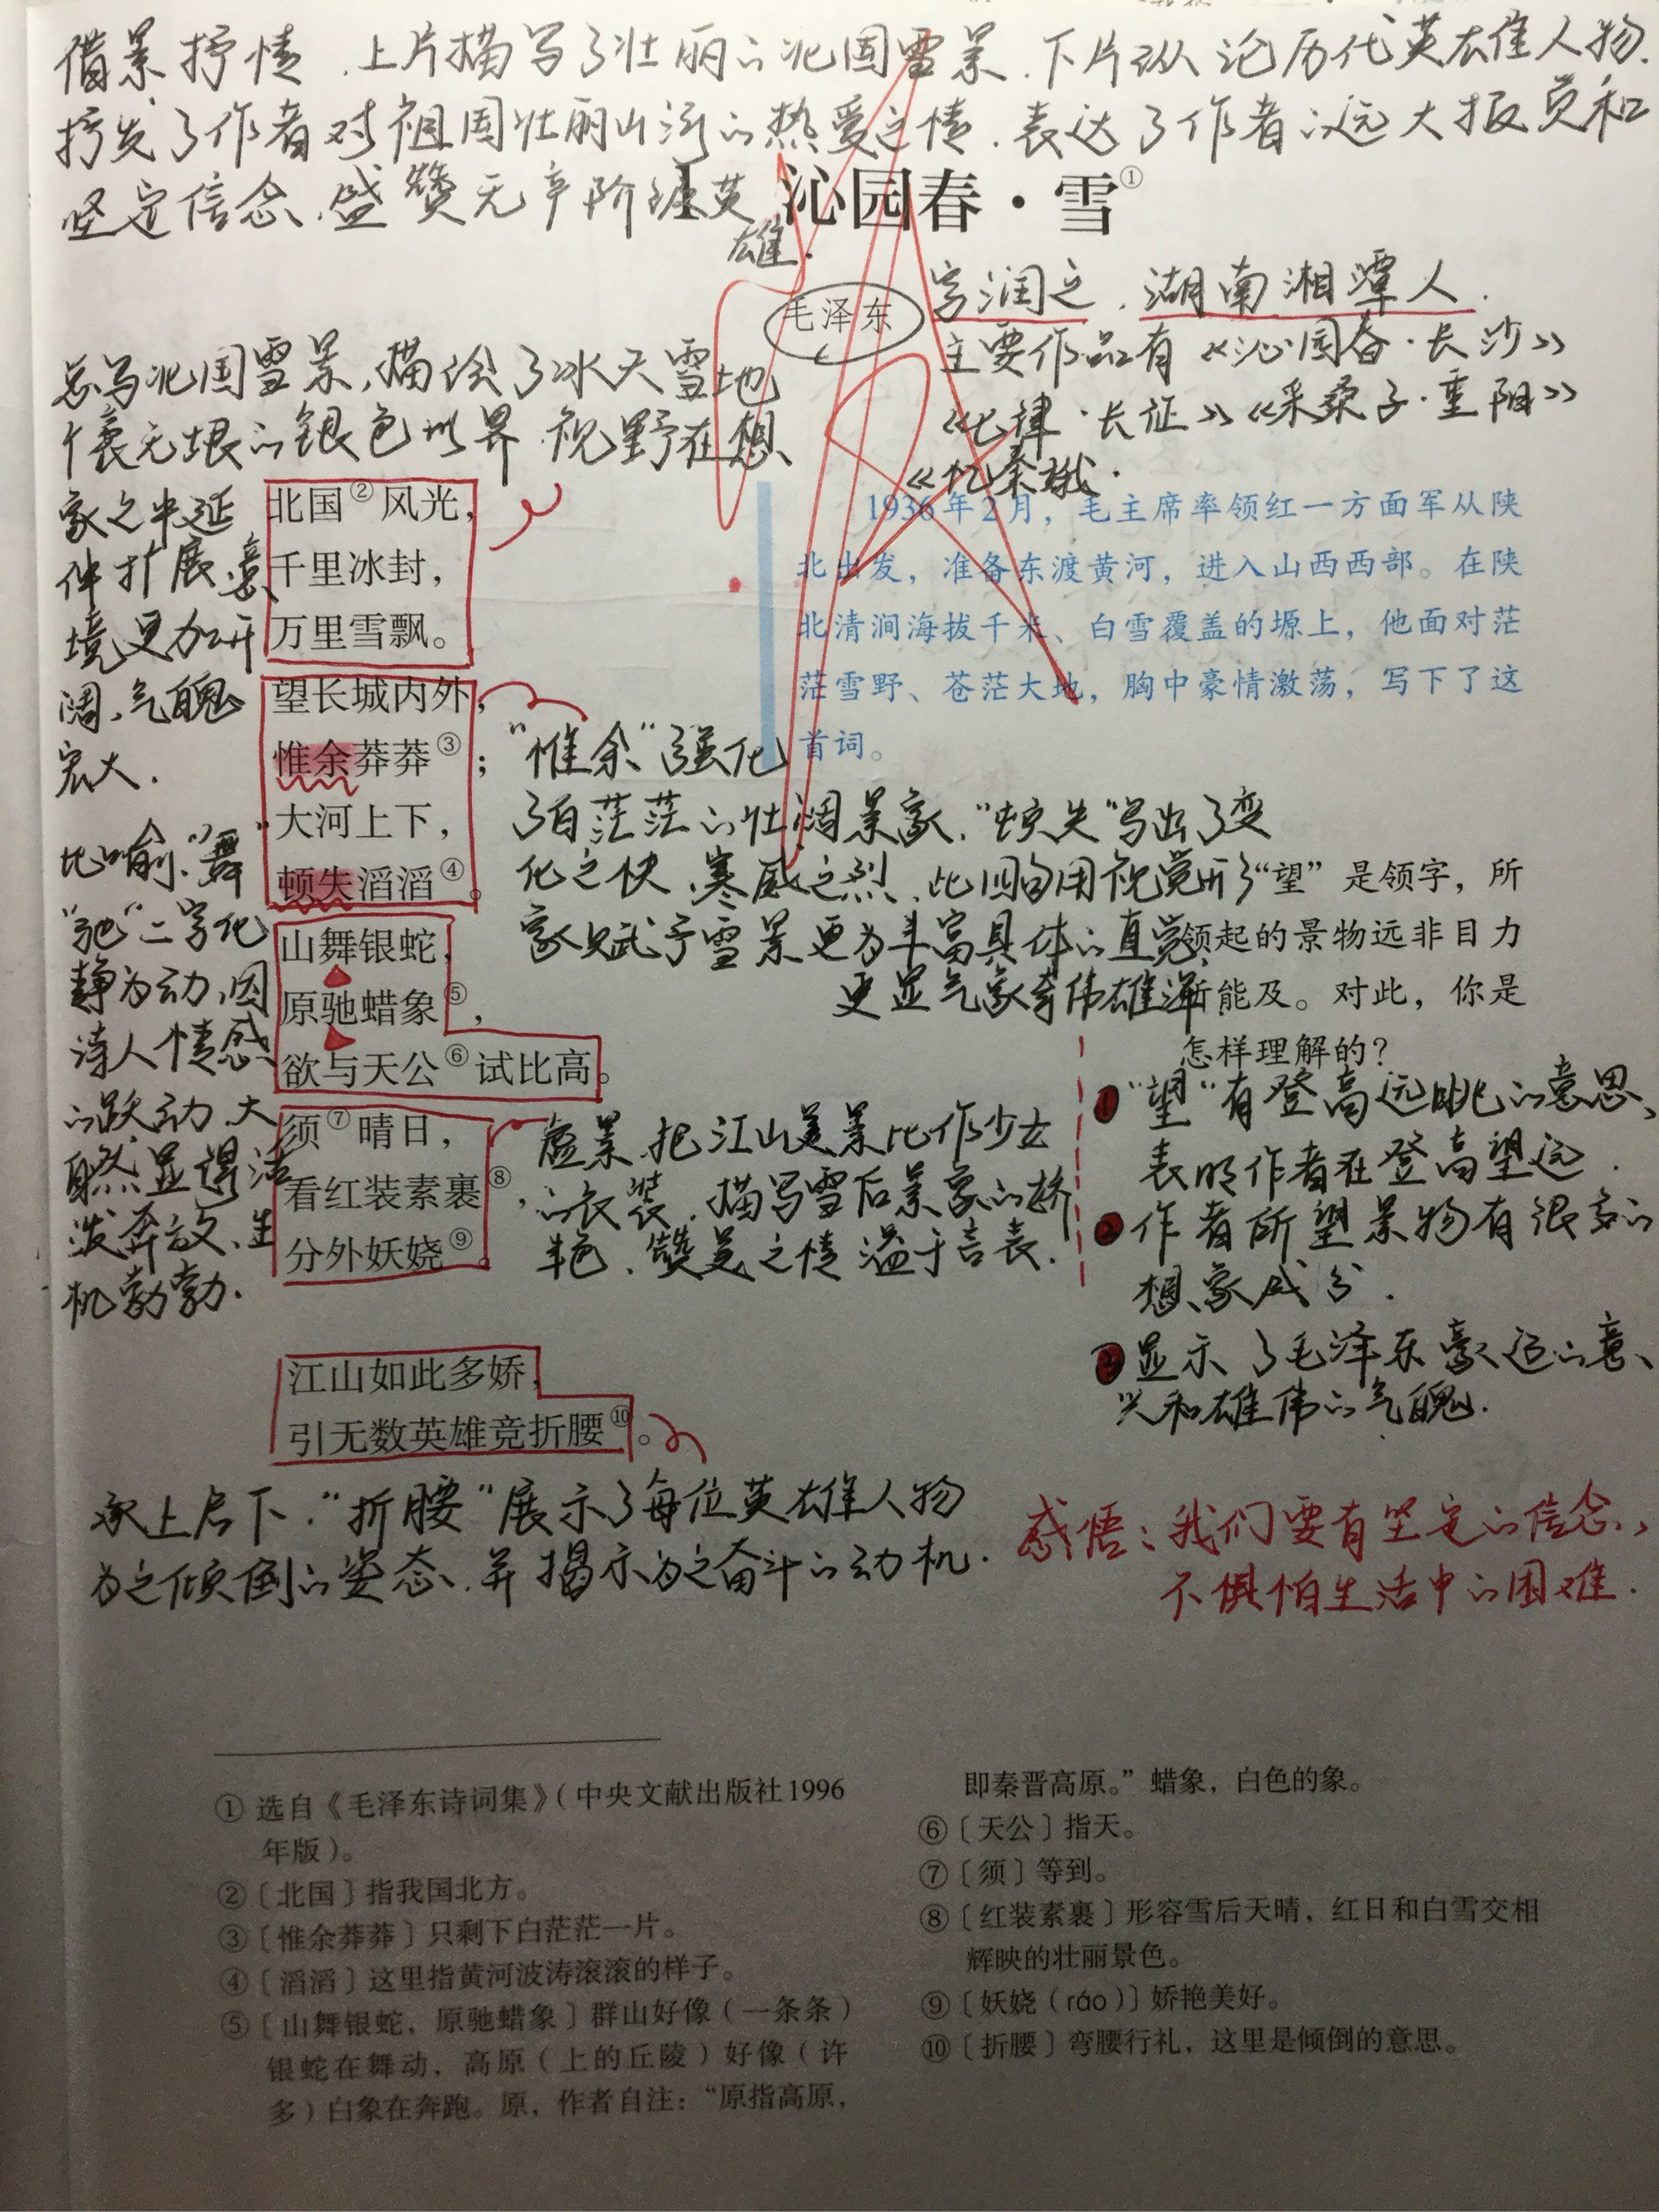 借景抒情.上片描写了壮丽的北国雪景.下片纵论历代英雄人物.
抒发了作者对祖国壮丽山河的热爱之情.表达了作者远大抱负和
坚定信念.盛赞无产阶级英
雄.
1 沁园春·雪①
毛泽东
字润之.湖南湘潭人.
主要作品有《沁园春·长沙》
《七律·长征》《采桑子·重阳》
《忆秦娥.
总写北国雪景,描绘了冰天雪地
广袤无垠的银色世界.视野在想
象之中延
伸扩展,意
境更加开
阔,气魄
宏大.
北国②风光,
千里冰封,
万里雪飘。
望长城内外,
惟余莽莽③;
大河上下,
顿失滔滔④。
山舞银蛇,
原驰蜡象⑤,
欲与天公⑥试比高。
须⑦晴日,
看红装素裹⑧,
分外妖娆⑨。
1936年2月,毛主席率领红一方面军从陕
北出发,准备东渡黄河,进入山西西部。在陕
北清涧海拔千米、白雪覆盖的塬上,他面对茫
茫雪野、苍茫大地,胸中豪情激荡,写下了这
首词。
"惟余"强化
了白茫茫的壮阔景象."顿失"写出了变
化之快.寒威之烈.此四句用视觉形
象赋予雪景更为丰富具体的直觉,
更显气象奇伟雄浑.
比喻."舞"
"驰"二字化
静为动,因
诗人情感
的跃动.大
自然显得活
泼奔放.生
机勃勃.
“望”是领字,所
领起的景物远非目力
所能及。对此,你是
怎样理解的?
虚景.把江山美景比作少女
的衣装.描写雪后景象的娇
艳.赞美之情溢于言表.
1"望"有登高远眺的意思、
表明作者在登高望远.
2作者所望景物有很多的
想象成分.
3显示了毛泽东豪迈的意
兴和雄伟的气魄.
江山如此多娇,
引无数英雄竞折腰⑩。
承上启下."折腰"展示了每位英雄人物
为之倾倒的姿态.并揭示为之奋斗的动机.
感悟:我们要有坚定的信念,
不惧怕生活中的困难.
① 选自《毛泽东诗词集》(中央文献出版社1996
年版)。
②〔北国〕指我国北方。
③〔惟余莽莽〕只剩下白茫茫一片。
④〔滔滔〕这里指黄河波涛滚滚的样子。
⑤〔山舞银蛇,原驰蜡象〕群山好像(一条条)
银蛇在舞动,高原(上的丘陵)好像(许
多)白象在奔跑。原,作者自注:“原指高原,
即秦晋高原。”蜡象,白色的象。
⑥〔天公〕指天。
⑦〔须〕等到。
⑧〔红装素裹〕形容雪后天晴,红日和白雪交相
辉映的壮丽景色。
⑨〔妖娆(ráo)〕娇艳美好。
⑩〔折腰〕弯腰行礼,这里是倾倒的意思。